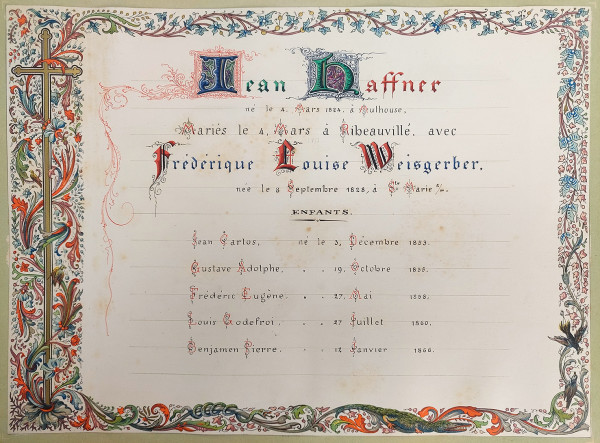 Jean Haffner
né le 4, Mars 1824, à Mulhouse,
Mariés le 4, Mars à Ribeauvillé, avec
Frédérique Louise Weisgerber.
née le 8 Septembre 1828, à Ste Marie a/m.
ENFANTS.
Jean Carlos, né le 3, Décembre 1853.
Gustave Adolphe, " 19, Octobre 1855.
Frédéric Eugène. " 27, Mai 1858.
Louis Godefroi, " " 27 Juillet 1860.
Benjamen Pierre. " " 12 Janvier 1866.